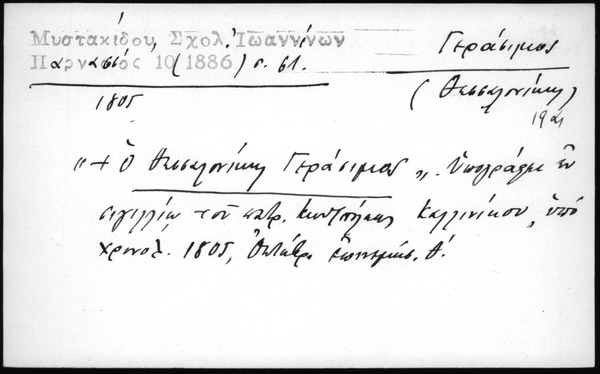 Μυστακίδου, Σχολ. Ἰωαννίνων
Παρνασσός 10 (1886) σ. 61.
Γεράσιμος
(Θεσσαλονίκης)
1805
"+ Ὁ Θεσσαλονίκης Γεράσιμος". Ὑπογράφει ἐν
σιγιλλίῳ τοῦ πατρ. Κων/πόλεως Καλλινίκου, ὑπό
χρονολ. 1805, Ὀκτώβρ. ἐπινεμήσ. θ'.